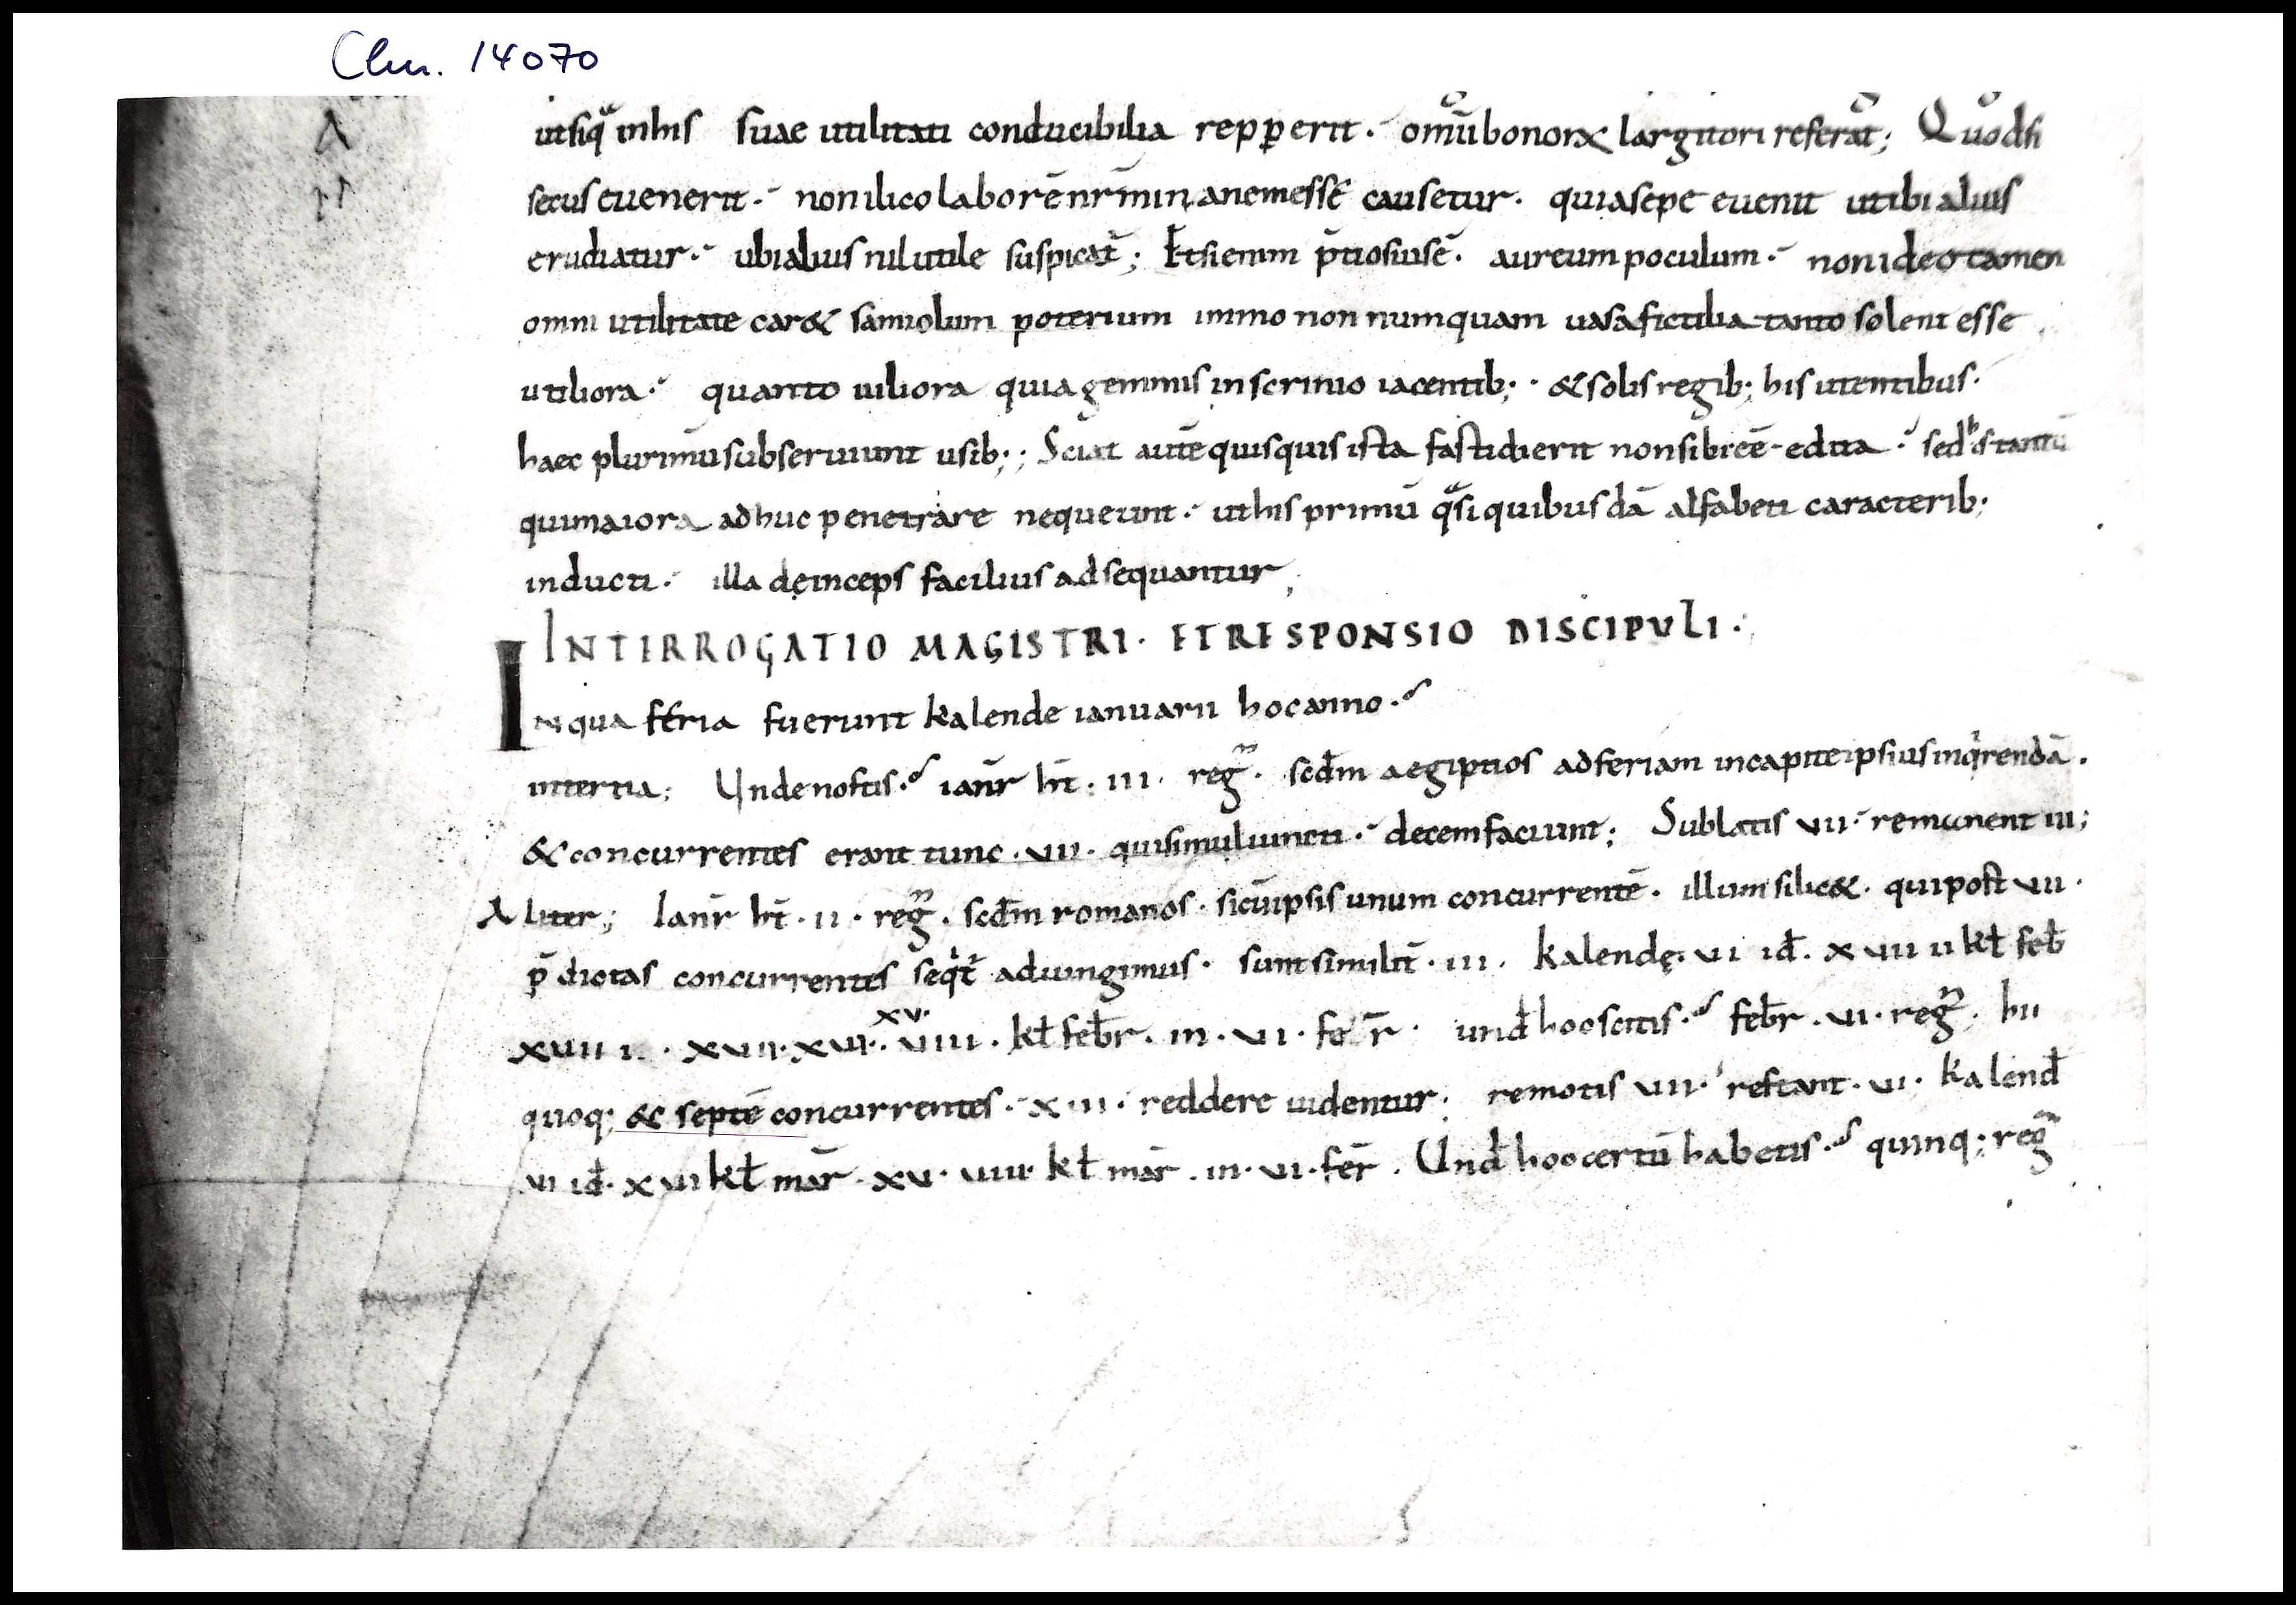 Clm. 14070
utsiqͣ inhis suae utilitati conducibilia repperit. omniū bonorꝝ largitori referat; Quodsi
secus evenerit. non ilico laborē nr̄m inanem esse causetur. quia sepe evenit ut ibi alius
erudiatur. ubi alius nil utile suspicat̄; Etsi enim p̄tiosius ē. aureum poculum. non ideo tamen
omni utilitate car& samiolum poterium immo non numquam vasa fictilia tanto solent esse
utiliora. quanto viliora quia gemmis in scrinio iacentib; · & solis regib; his utentibus.
haec plurimū subserviunt usib;; Sciat autē quisquis ista fastidierit non sibi eē edita. sed hͥs tantū
qui maiora adhuc penetrare nequeunt. ut his primū qͣsi quibusdā alfabeti caracterib;
inducti. illa dęinceps facilius adsequantur;
INTERROGATIO MAGISTRI. ET RESPONSIO DISCIPULI.
In qua feria fuerunt kalende ianuarii hoc anno.
in tertia; Unde nostis. ianr̄ ht̄. III. reg̃. scd̄m aegiptios ad feriam in capite ipsius inqͥrendā.
& concurrentes erant tunc. VII. qui simul iuncti. decem faciunt; Sublatis VII. remanent III;
Aliter; Ianr̄ ht̄. II. reg̃. scd̄m romanos. sicū ipsis unum concurrentē. illum silic&. qui post VII.
p̄dictas concurrentes seqͥt̄ adiungimus. sunt similit̄. III. Kalendę. VI id̄. XVIIII kł feb̄
XVIII. XVII. XVI. XV. VIIII. kł feb̄r. in. VI. fer̄. und̄ hoc scitis. feb̄r. VI. reg̃. hii
quoq; & septē concurrentes. XIII. reddere videntur; remotis VII. restant. VI. Kalend̄
VI id̄. XVI kł mar̄. XV. VIIII. kł mar̄. in. VI. fer̄. Und̄ hoc certū habetis. quinq; reg̃